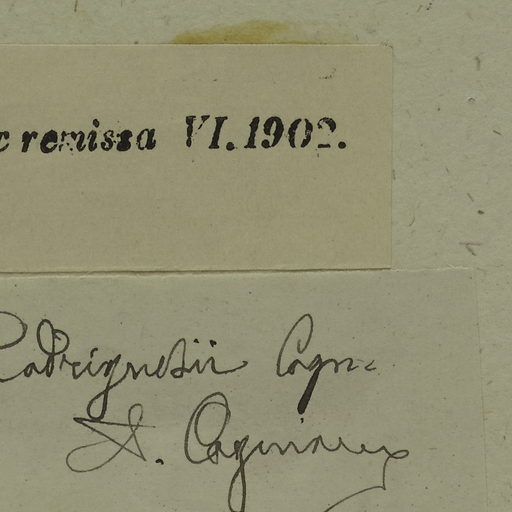 c remissa VI. 1902.
Rodriguesii Cogn.
A. Cogniaux